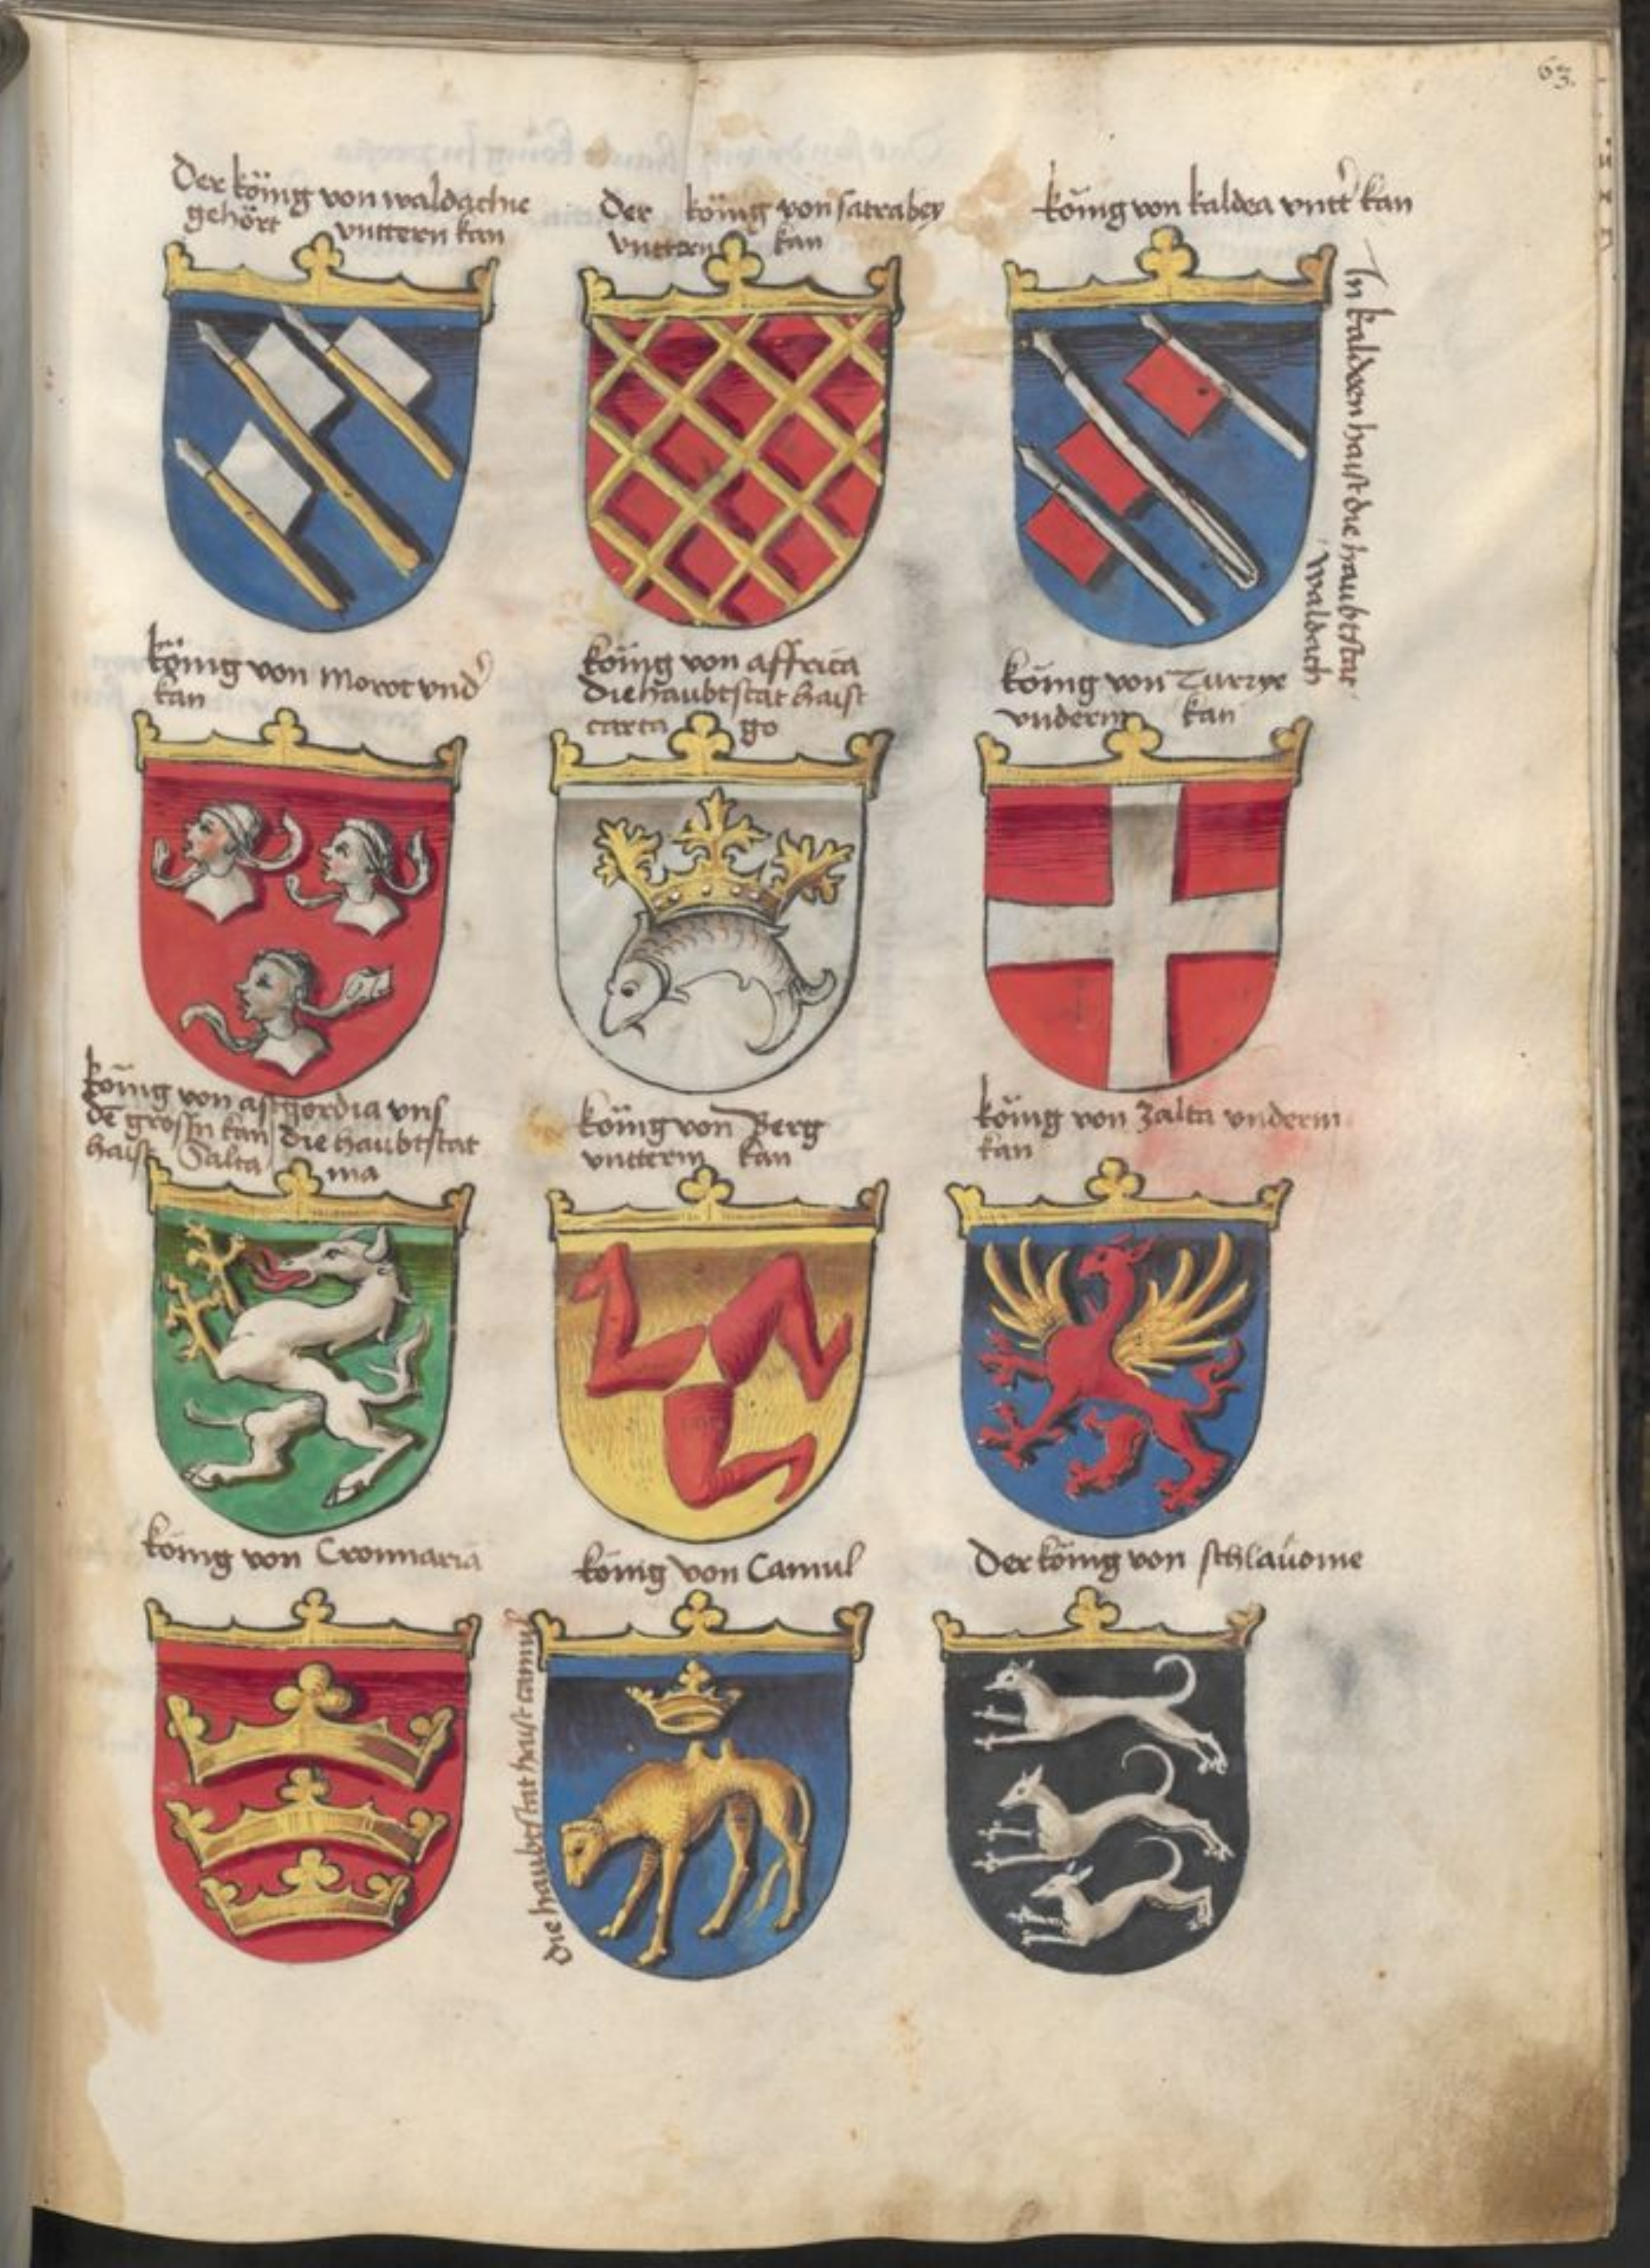 63.
Der köing von waldachie
gehört vnttern kan
Der köing von satrabey
vnttern kan
köing von kaldea vntt' kan
In kaldeen haist die haubtstat
waldach
köing von Morot vnd'
kan
köing von affrica
Die haubtstat haist
carta go
köing von Turzye
vnderm kan
köing von astgordia vns
de grossn kan die haubtstat
haist Salta ma
köing von Berg
vntterm kan
köing von Zalta vnderm
kan
köing von Cronnaria
köing von Camul
die haubtstat haist camul
Der köing von schlauonie